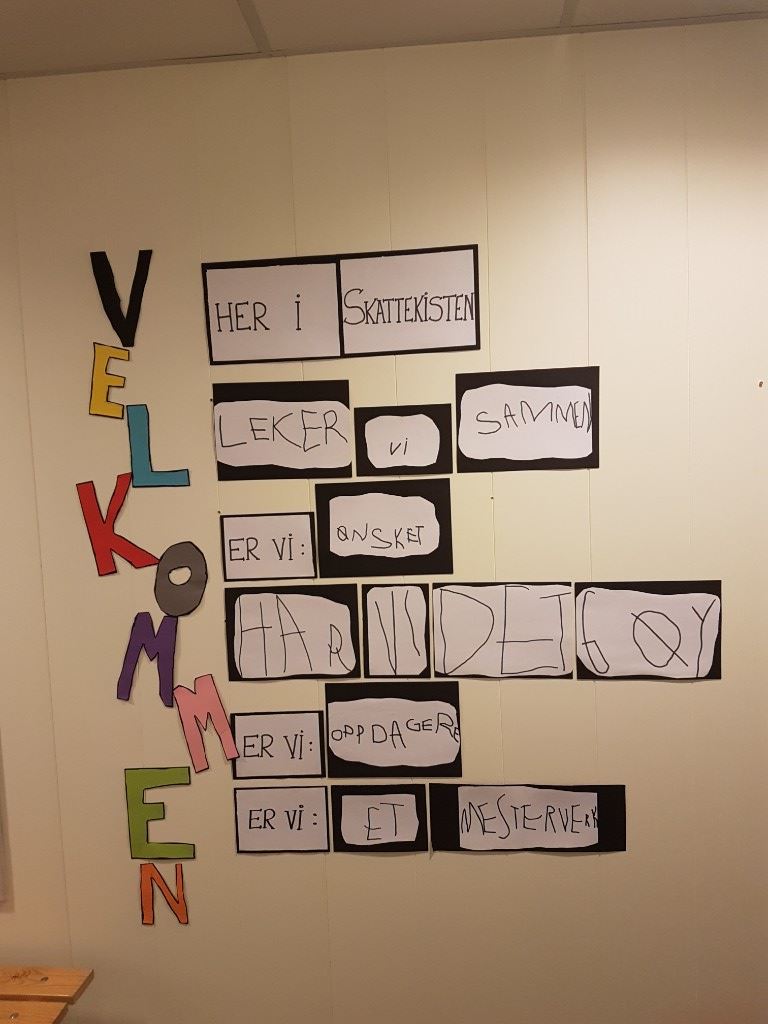 VELKOMMEN
HER I SKATTEKISTEN
LEKER Vi SAMMEN
ER VI: ØNSKET
HAR VI DET GØY
ER VI: OPPDAGERE
ER VI: ET MESTERVERK